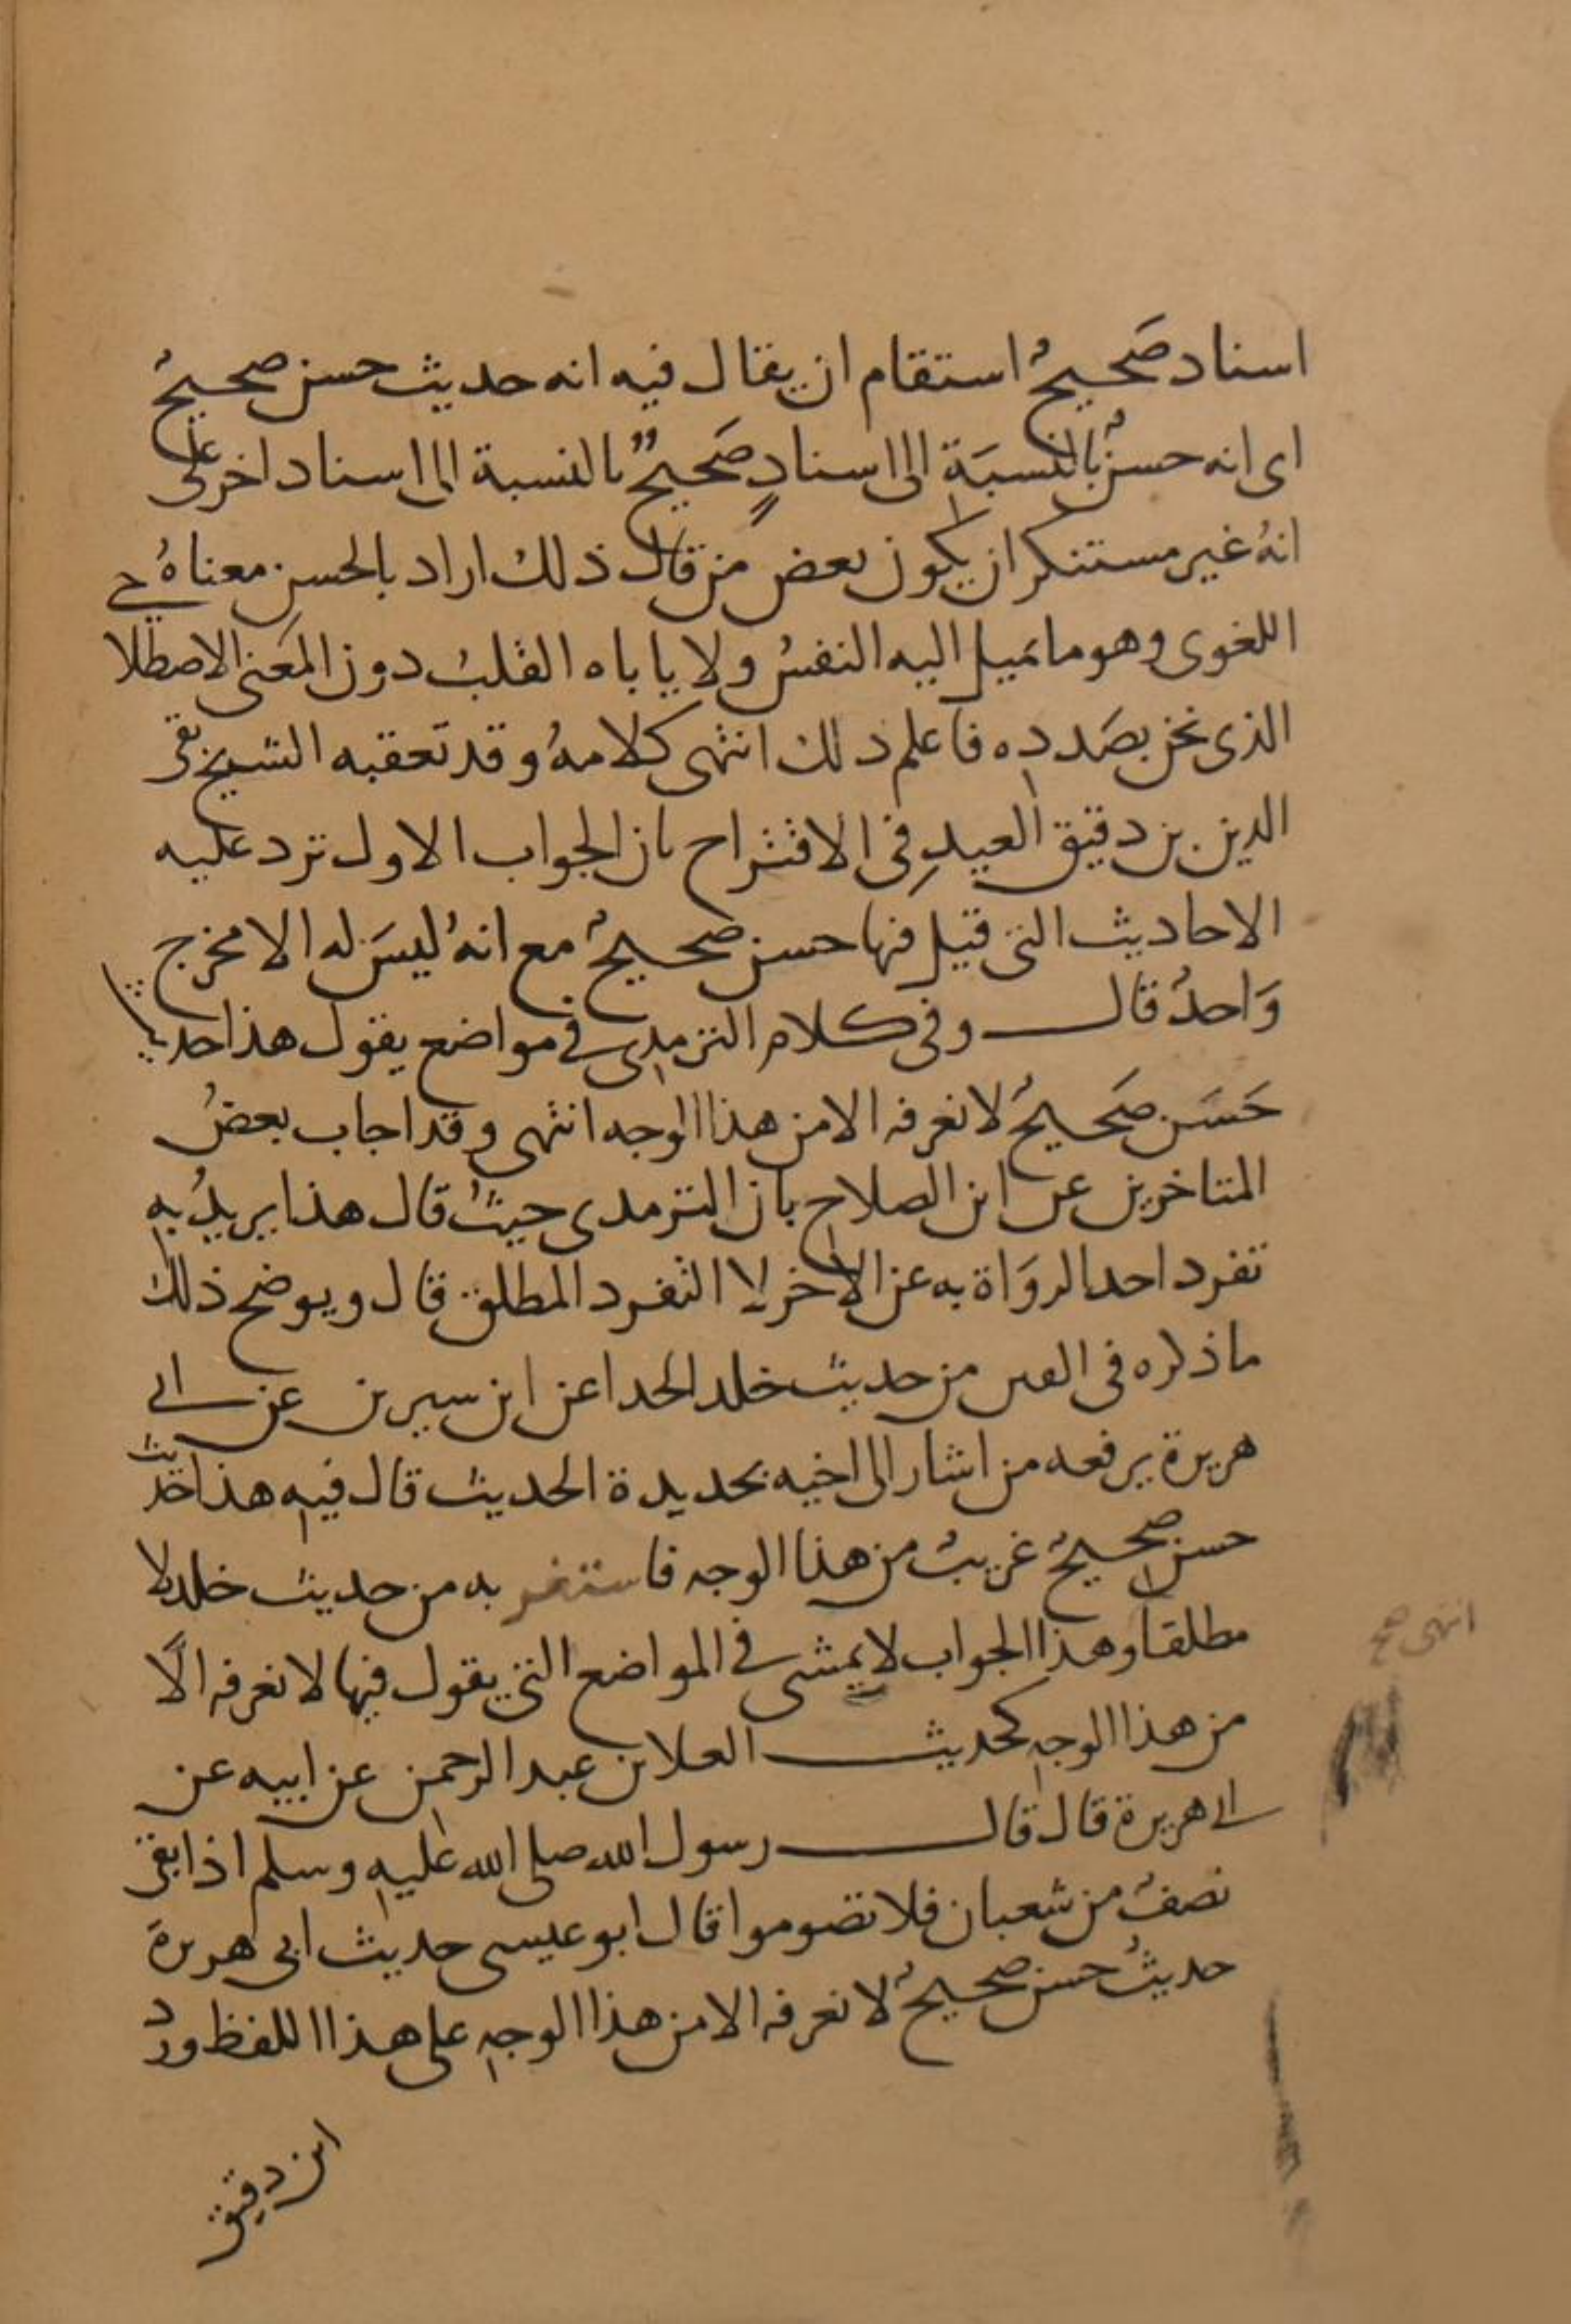 اسناد صَحيحٌ استقام ان يقال فيه انه حديث حسن صحيحٌ
اى انه حسنٌ بالنسبَة الى اسنادٍ صَحيحٌ بالنسبة الى اسناد اخر على
انهُ غير مستنكر ان يكون بعض من قال ذلك اراد بالحسن معناهُ
اللغوى وهو ما تميل اليه النفسُ ولا ياباه القلبُ دون المعَنى الاصطلاحي
الذى نحن بصَدده فاعلم ذلك انتهى كلامهُ وقد تعقبه الشيخ تقى
الدين بن دقيق العيدِ فى الاقتراح بان الجواب الاول ترد عليه
الاحاديث التى قيل فيها حسن صحيحٌ مع انهُ ليسَ له الا مخرج
وَاحدٌ قال وفى كلام الترمذى فى مواضع يقول هذا حديث
حَسَن صَحيحٌ لا نعرفه الا من هذا الوجه انتهى وقد اجاب بعضُ
المتاخرين عن ابن الصلاح بان الترمدى حيثُ قال هذا يريدُ به
تفرد احد الروَاة به عن الاخر لا التفرد المطلق قال ويوضح ذلك
ما ذكره فى الفتن من حديث خلد الحدا عن ابن سيرين عن ابى
هريرة يرفعه من اشار الى اخيه بحديدة الحديث قال فيه هذا حديث
حسن صحيحٌ غريبٌ من هذا الوجه فاستغر به من حديث خلد لا
مطلقا وهذا الجواب لا يمشى فى المواضع التى يقول فيها لا نعرفه الَّا
انتهى صح
من هذا الوجه كحديث العلا بن عبد الرحمن عن ابيه عن
ابى هريرة قال قال رسول الله صلى الله عليه وسلم اذا بقى
نصفٌ من شعبان فلا تصوموا قال ابو عيسى حديث ابى هريرة
حديثٌ حسن صحيحٌ لا نعرفه الا من هذا الوجه على هذا اللفظ ورد
ابن دقيق